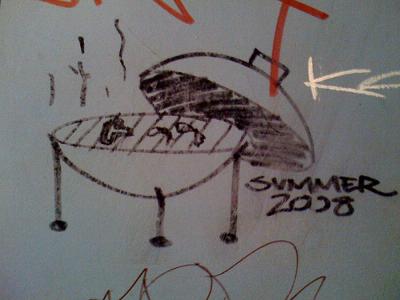 SUMMER
2008